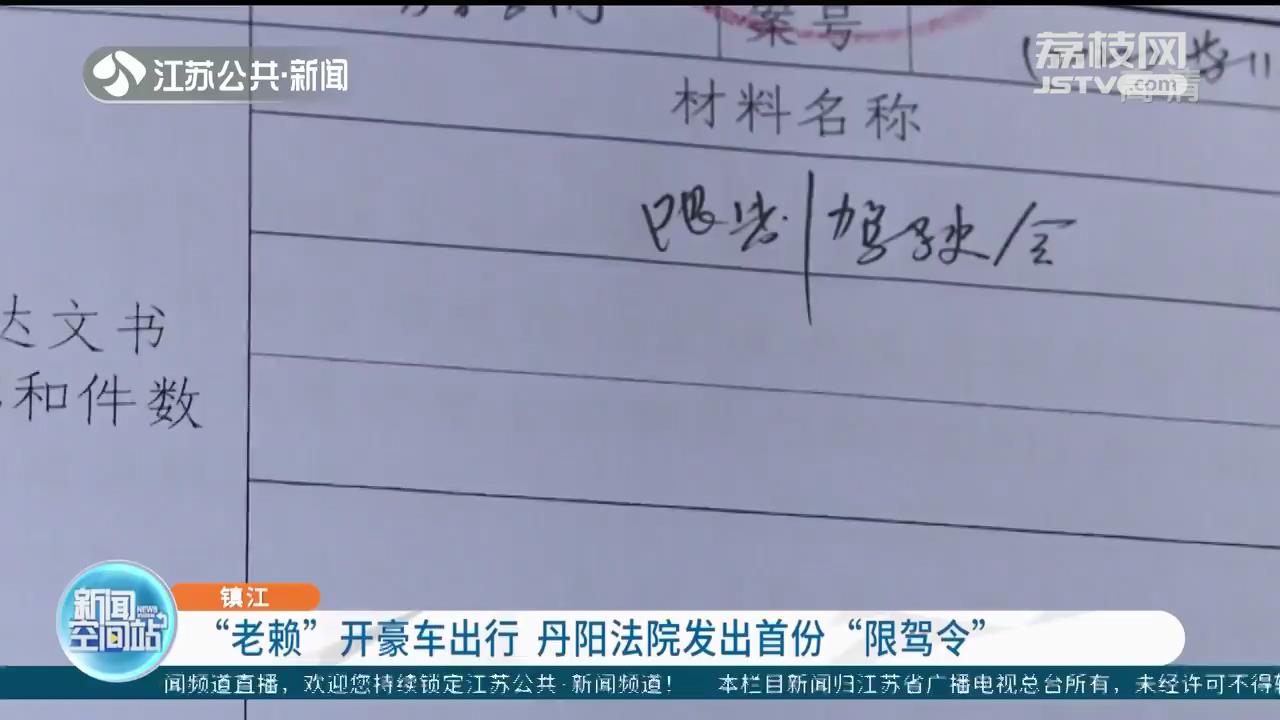 案号
江苏公共·新闻
荔枝网
JSTV.com
高清
材料名称
限制驾驶令
达文书
和件数
新闻
NEWS
空间站
镇江
“老赖”开豪车出行 丹阳法院发出首份“限驾令”
闻频道直播，欢迎您持续锁定江苏公共·新闻频道！ 本栏目新闻归江苏省广播电视总台所有，未经许可不得转